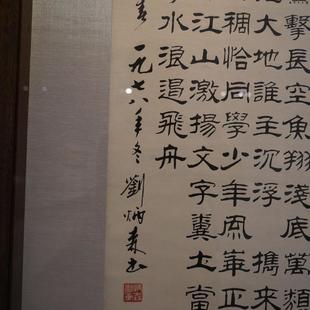 擊長空魚翔淺底萬類
大地誰主沉浮攜來
稠恰同學少年風華正
江山激揚文字糞土當
水浪遏飛舟
一九七八年冬劉炳森書